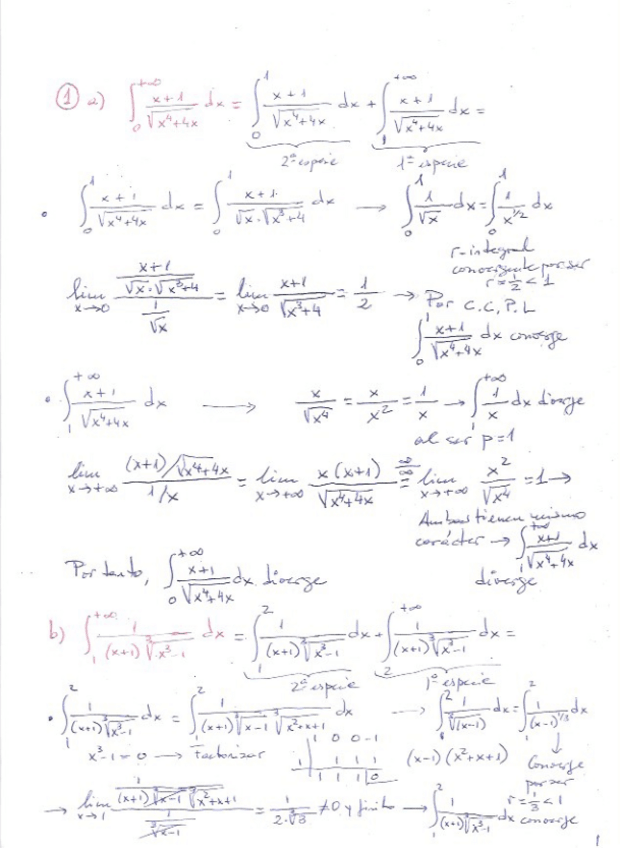 ① a) ∫_0^{+∞} (x+1)/√(x⁴+4x) dx = ∫_0^1 (x+1)/√(x⁴+4x) dx + ∫_1^{+∞} (x+1)/√(x⁴+4x) dx =
2ª especie 1ª especie
• ∫_0^1 (x+1)/√(x⁴+4x) dx = ∫_0^1 (x+1)/(√x·√(x³+4)) dx → ∫_0^1 1/√x dx = ∫_0^1 1/x^{1/2} dx
r-integral
convergente por ser
r = 1/2 < 1
lim_{x→0} ((x+1)/(√x·√(x³+4)))/(1/√x) = lim_{x→0} (x+1)/√(x³+4) = 1/2 → Por C.C.P.L
∫_0^1 (x+1)/√(x⁴+4x) dx converge
• ∫_1^{+∞} (x+1)/√(x⁴+4x) dx → x/√x⁴ = x/x² = 1/x → ∫_1^{+∞} 1/x dx diverge
al ser p=1
lim_{x→+∞} ((x+1)/√(x⁴+4x))/(1/x) = lim_{x→+∞} x(x+1)/√(x⁴+4x) =^{∞/∞} lim_{x→+∞} x²/√x⁴ = 1 →
Ambas tienen mismo
carácter → ∫_1^{+∞} (x+1)/√(x⁴+4x) dx
diverge
Por tanto, ∫_0^{+∞} (x+1)/√(x⁴+4x) dx diverge
b) ∫_1^{+∞} 1/((x+1)∛(x³-1)) dx = ∫_1^2 1/((x+1)∛(x³-1)) dx + ∫_2^{+∞} 1/((x+1)∛(x³-1)) dx =
2ª especie 1ª especie
• ∫_1^2 1/((x+1)∛(x³-1)) dx = ∫_1^2 1/((x+1)∛(x-1)∛(x²+x+1)) dx → ∫_1^2 1/∛(x-1) dx = ∫_1^2 1/(x-1)^{1/3} dx
x³-1=0 → Factorizar
1 0 0 -1
1 1 1 1
1 1 1 0
(x-1)(x²+x+1)
Converge
por ser
r = 1/3 < 1
→ lim_{x→1} (1/((x+1)∛(x-1)∛(x²+x+1)))/(1/∛(x-1)) = 1/(2·∛3) ≠ 0 y finito → ∫_1^2 1/((x+1)∛(x³-1)) dx converge
1